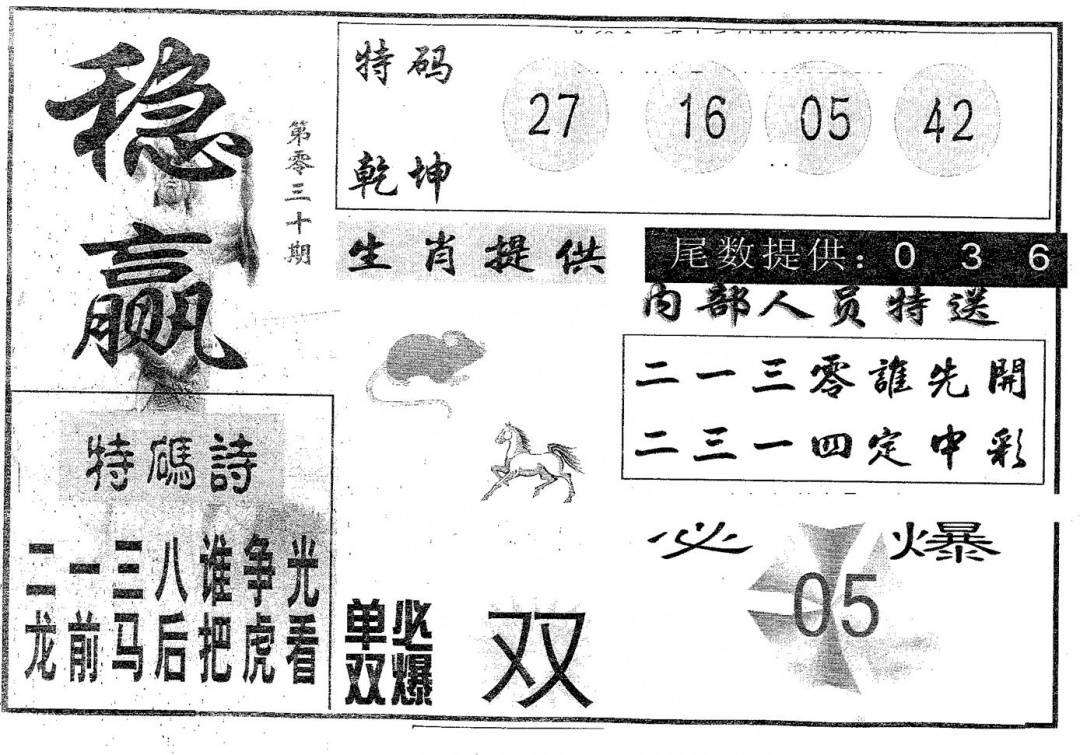 稳赢
第零三十期
特码
乾坤
27 16 05 42
生肖提供
尾数提供：0 3 6
内部人员特送
二一三零誰先開
二三一四定中彩
特碼詩
二一三八谁争光
龙前马后把虎看
单必
双爆
双
必爆
05